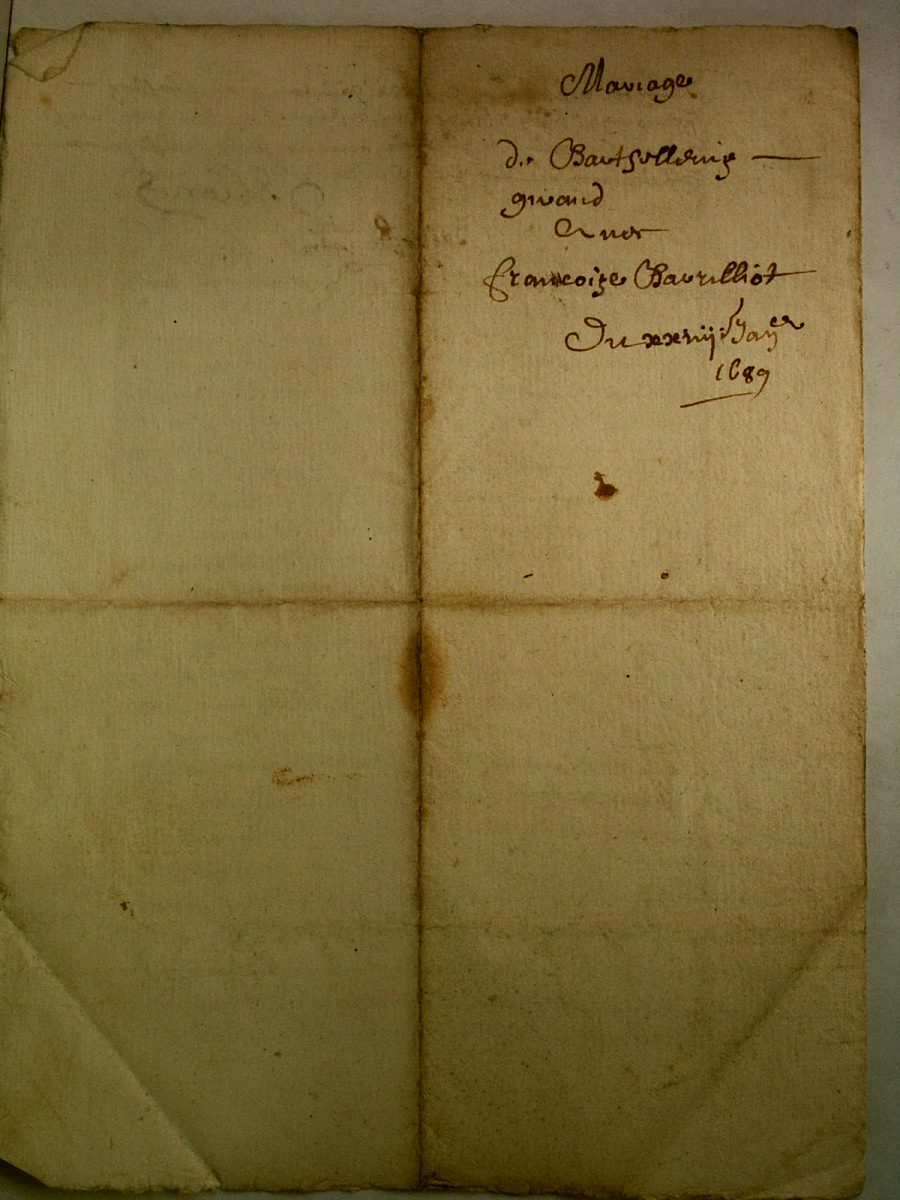 Mariage
de Barthollemig
girard
Auec
Francoise Baurilliot
Du xxviij Jan.er
1689